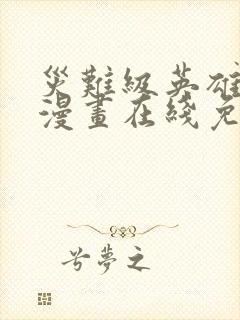 災難級英雄
漫畫在綫免
兮夢之